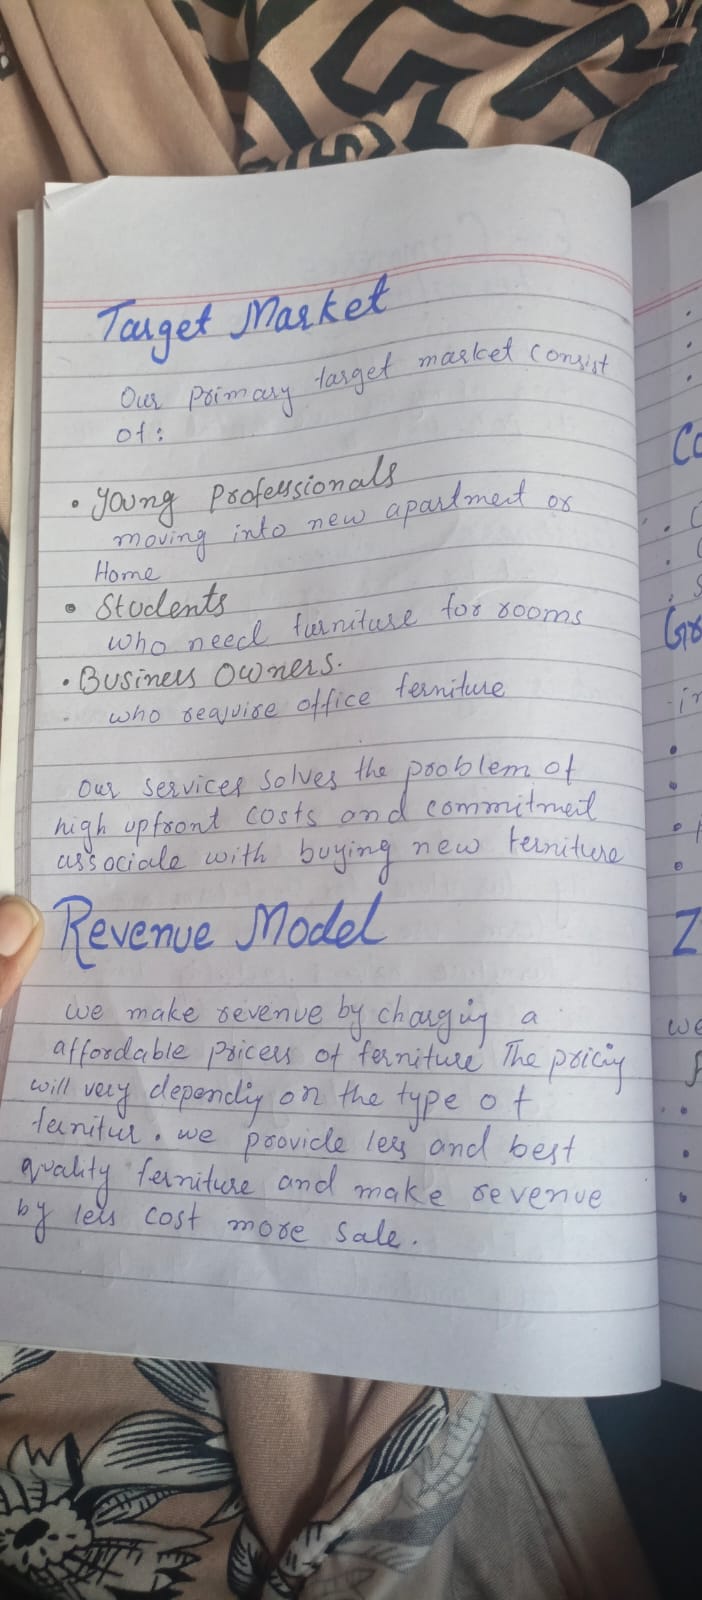 Target Market
Our primary target market consist
of:
• Young Professionals
moving into new apartment or
Home
• Students
who need furniture for rooms
• Business Owners.
who require office ferniture
Our services solves the problem of
high upfront costs and commitment
associate with buying new ferniture
Revenue Model
we make revenue by charging a
affordable pricess of ferniture The pricing
will very depending on the type of
fernitur. we provide less and best
quality ferniture and make revenue
by less cost more sale.
Co
Gr
in
Z
we